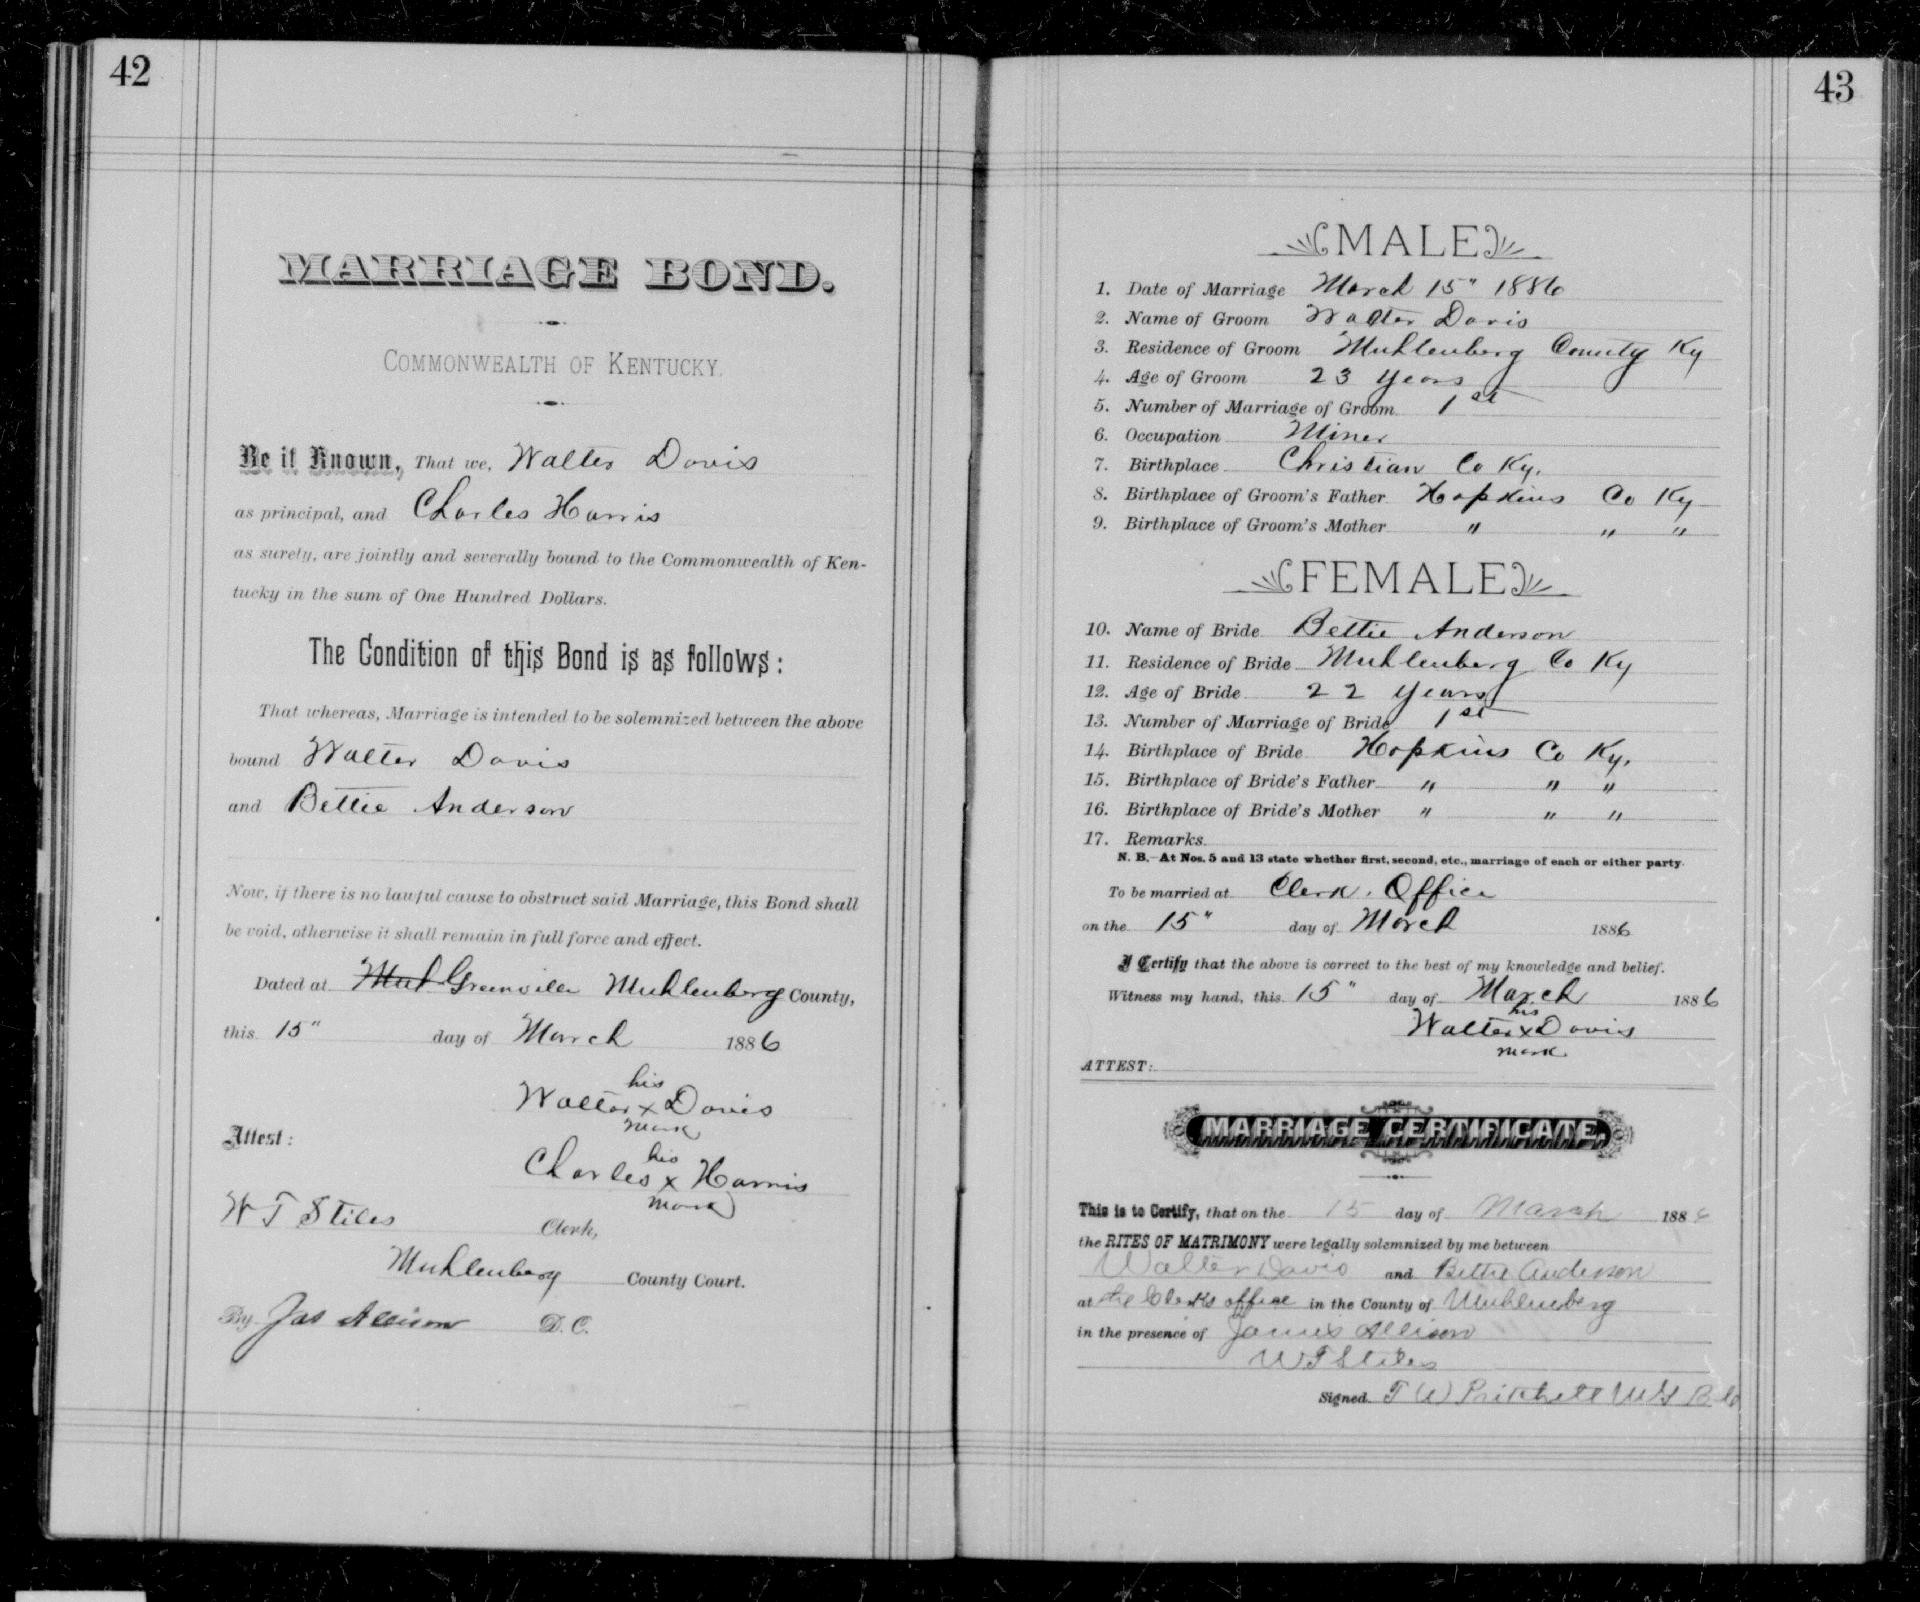 42
MARRIAGE BOND.
COMMONWEALTH OF KENTUCKY.
Be it Known, That we, Walter Davis
as principal, and Charles Harris
as surety, are jointly and severally bound to the Commonwealth of Ken-
tucky in the sum of One Hundred Dollars.
The Condition of this Bond is as follows:
That whereas, Marriage is intended to be solemnized between the above
bound Walter Davis
and Bettie Anderson
Now, if there is no lawful cause to obstruct said Marriage, this Bond shall
be void, otherwise it shall remain in full force and effect.
Dated at Muh Greenville Muhlenberg County,
this 15" day of March 1886
his
Walter x Davis
mark
Attest:
his
Charles x Harris
mark
W T Stiles Clerk,
Muhlenberg County Court.
By Jas Allison D. C.
43
MALE
1. Date of Marriage March 15" 1886
2. Name of Groom Walter Davis
3. Residence of Groom Muhlenberg County Ky
4. Age of Groom 23 years
5. Number of Marriage of Groom 1st
6. Occupation Miner
7. Birthplace Christian Co Ky.
8. Birthplace of Groom's Father Hopkins Co Ky
9. Birthplace of Groom's Mother " " "
FEMALE
10. Name of Bride Bettie Anderson
11. Residence of Bride Muhlenberg Co Ky
12. Age of Bride 22 years
13. Number of Marriage of Bride 1st
14. Birthplace of Bride Hopkins Co Ky.
15. Birthplace of Bride's Father " " "
16. Birthplace of Bride's Mother " " "
17. Remarks
N. B.—At Nos. 5 and 13 state whether first, second, etc., marriage of each or either party.
To be married at Clerk. Office
on the 15" day of March 1886
I Certify that the above is correct to the best of my knowledge and belief.
Witness my hand, this 15" day of March 1886
his
Walter x Davis
mark
ATTEST:
MARRIAGE CERTIFICATE.
This is to Certify, that on the 15 day of March 1886
the RITES OF MATRIMONY were legally solemnized by me between
Walter Davis and Bettie Anderson
at the Clerks office in the County of Muhlenberg
in the presence of James Allison
W T Stiles
Signed. T W Pritchett